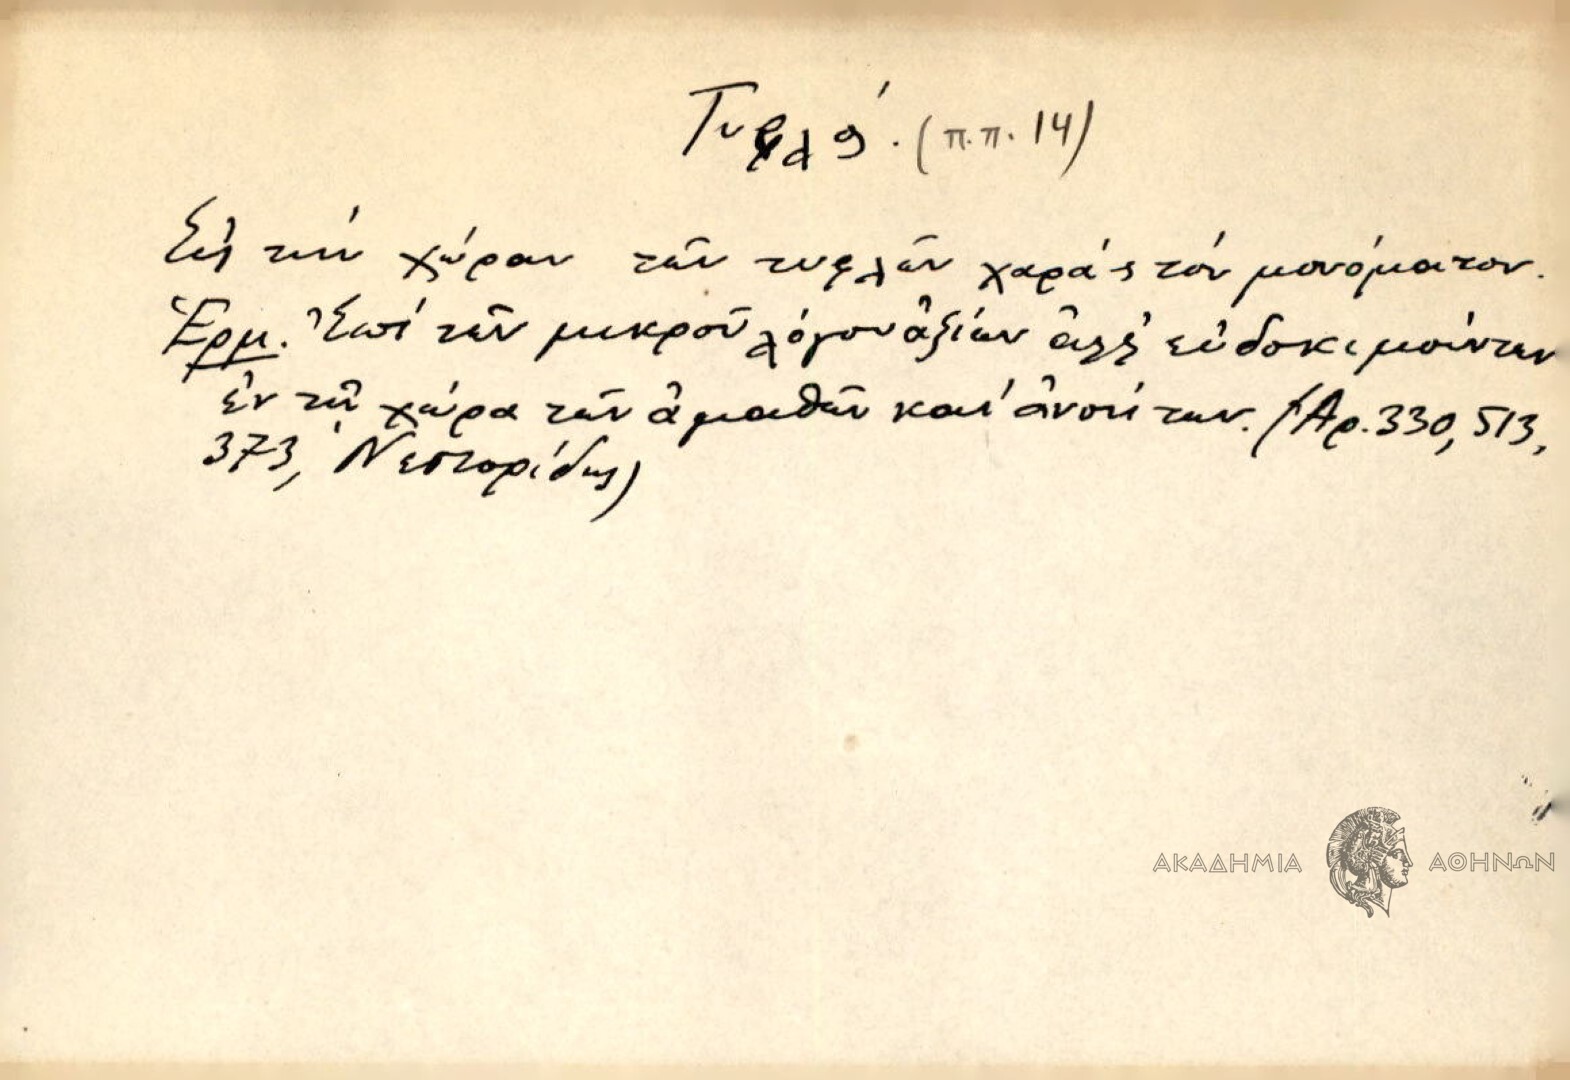 Τυφλός. (π.π. 14)
Εἰς τὴν χώραν τῶν τυφλῶν χαρά ς τὸν μονόματον.
Ἑρμ. Ἐπὶ τῶν μικροῦ λόγου ἀξίων ἀλλ' εὐδοκιμούντων
ἐν τῇ χώρᾳ τῶν ἀμαθῶν καὶ ἀνοήτων. (Ἀρ. 330, 513,
373, Νεστορίδης)
ΑΚΑΔΗΜΙΑ ΑΘΗΝΩΝ